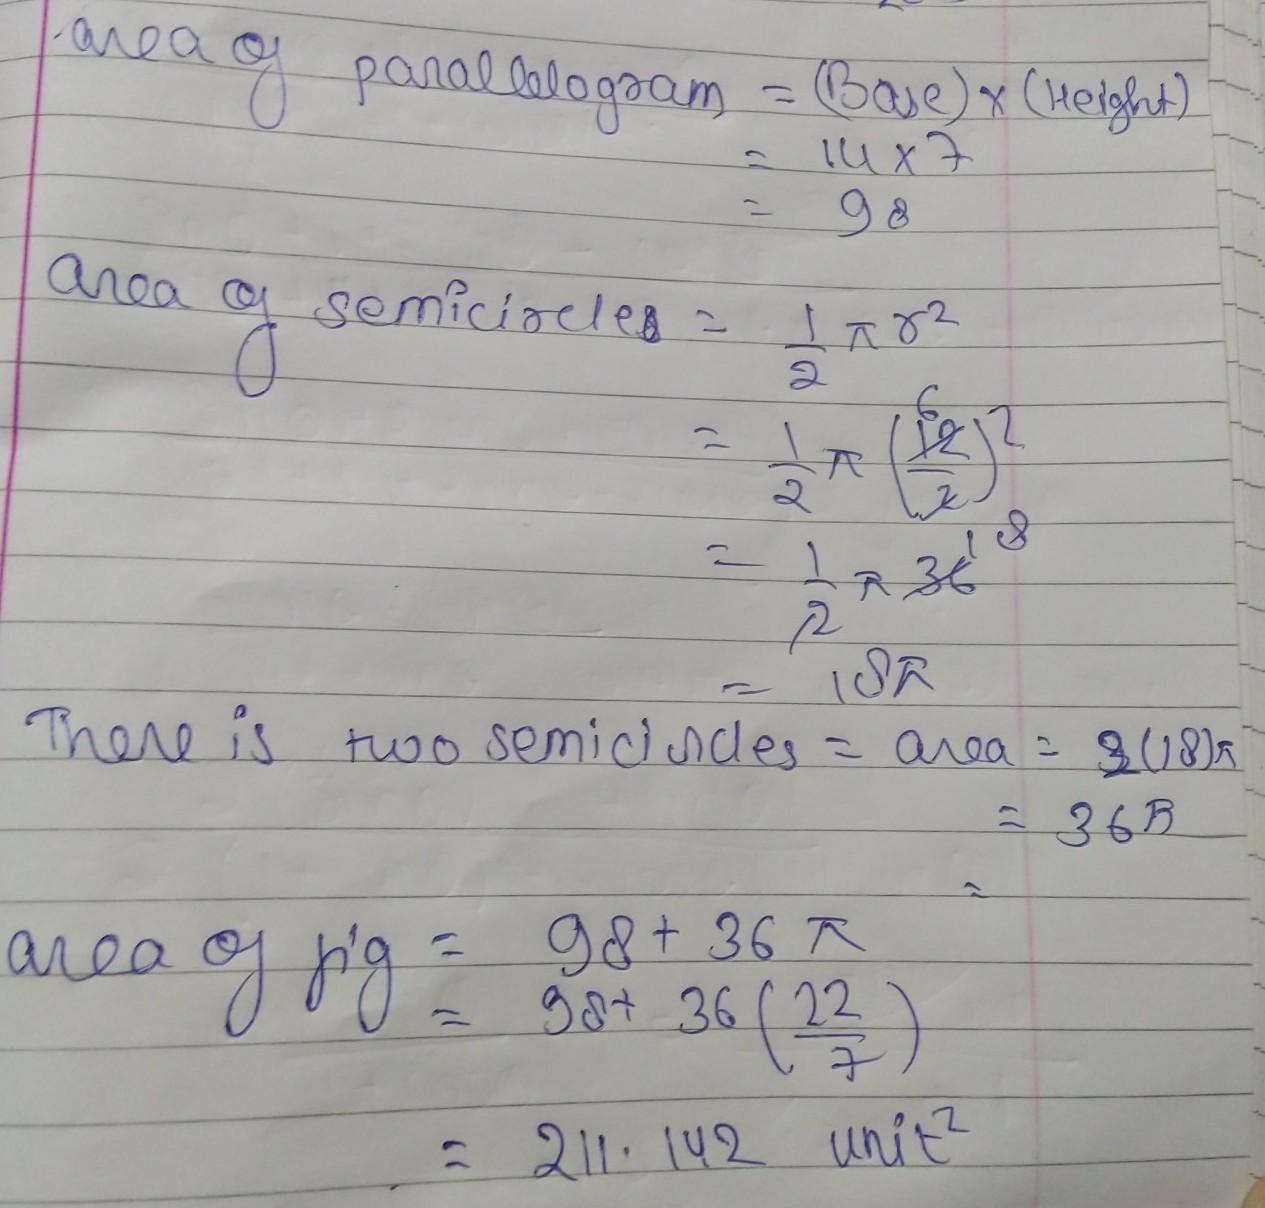 area of parallelogram = (Base) × (Height)
= 14 × 7
= 98
area of semicircles = 1/2 π r²
= 1/2 π (12/2)² 6
= 1/2 π 36 18
= 18π
There is two semicircles = area = 2(18)π
= 36π
=
area of fig = 98 + 36 π
= 98 + 36 (22/7)
= 211.142 unit²